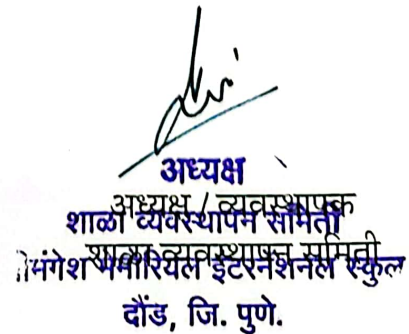 अध्यक्ष
अध्यक्ष / व्यवस्थापक
शाळा व्यवस्थापन समिती
शाळा व्यवस्थापन समिती
मंगेश मेमोरियल इंटरनॅशनल स्कुल
दौंड, जि. पुणे.